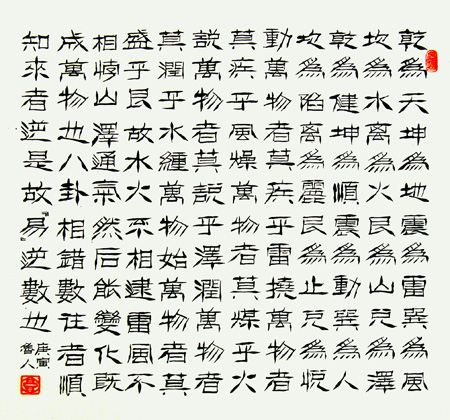 乾為天坤為地震為雷巽為風
坎為水離為火艮為山兌為澤
乾為健坤為順震為動巽為人
坎為陷離為麗艮為止兌為悅
動萬物者莫疾乎雷撓萬物者
莫疾乎風燥萬物者莫煤乎火
説萬物者莫説乎澤潤萬物者
莫潤乎水纏萬物始萬物者莫
盛乎艮故水火不相逮雷風不
相悖山澤通氣然后能變化既
成萬物也八卦相錯數往者順
知來者逆是故『易』逆數也
庚寅
魯人